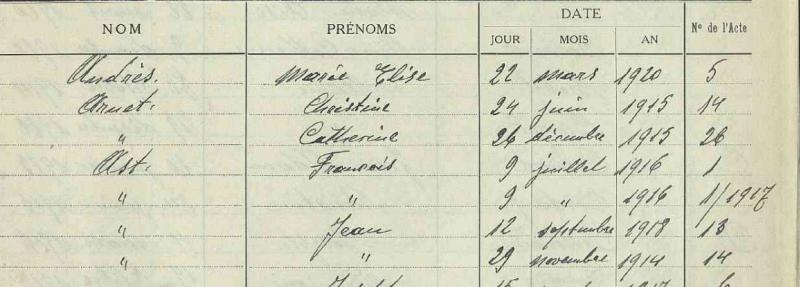 NOM PRÉNOMS DATE N° de l'Acte
JOUR MOIS AN
Andrès. Marie Elise 22 mars 1920 5
Arnet. Christine 24 juin 1915 14
" Catherine 26 décembre 1915 26
Ast. François 9 juillet 1916 1
" " 9 " 1916 1/1917
" Jean 12 septembre 1918 13
" " 29 novembre 1914 14